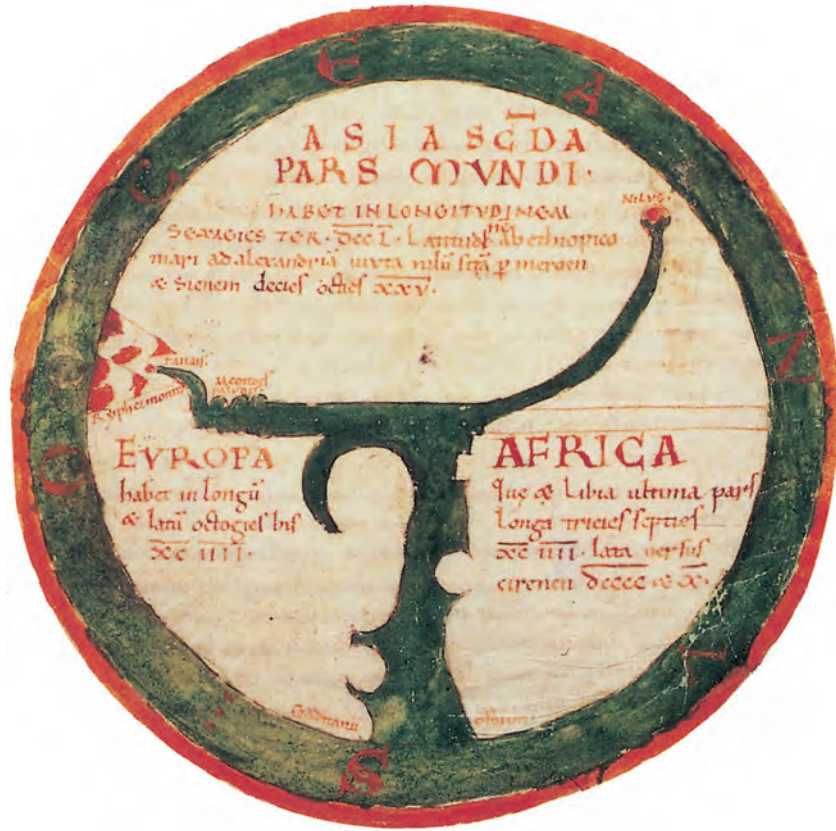 OCEANVS
ASIA SC̄DA
PARS MVNDI·
HABET IN LONGITVDINEM
SEXAGIES TER· D̅C̅C̅L̅· ab ethiopico
mari ad alexandriā iuxta nilū p̱ meroen
& sienem decies octies X̅X̅V̅·
NILVS·
tanais·
EVROPA
habet in longū
& latū octogies bis
X̅C̅ I̅I̅I̅I̅·
AFRICA
Que & Libia ultima pars
longa tricies septies
X̅C̅ I̅I̅I̅I̅· lata uersus
cireneu D̅C̅C̅C̅C̅ & X̅·